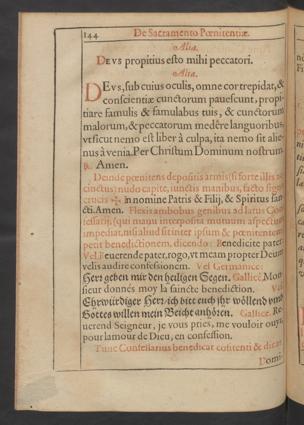 144 De Sacramento Pœnitentiæ
Alia.
DEVS propitius esto mihi peccatori.
Alia.
DEVS, sub cuius oculis, omne cor trepidat, &
conscientiæ cunctorum pauescunt, propi-
tiare famulis & famulabus tuis, & cunctorum
malorum, & peccatorum medêre languoribus:
vt sicut nemo est liber à culpa, ita nemo sit alie-
nus à venia. Per Christum Dominum nostrum.
℟. Amen.
Deinde pœnitens depositis armis (si forte illis ac-
cinctus) nudo capite, iunctis manibus, facto signo
crucis ✠ In nomine Patris & Filij, & Spiritus san-
cti. Amen. Flexis ambobus genibus ad latus Con-
fessarij, (qui manu interposita mutuum aspectum
impediat, nisi aliud sit inter ipsum & pœnitentem)
petit benedictionem, dicendo: Benedicite pater.
Vel Reuerende pater, rogo, vt meam propter Deum
velis audire confessionem. Vel Germanicè:
Herr geben mir den heiligen Segen. Gallicè: Mon-
sieur donnés moy la saincte benediction. Vel
Ehrwürdiger Herr ich bitte euch ihr wöllend vmb
Gottes willen mein Beicht anhören. Gallicè. Re-
uerend Seigneur, je vous pries, me vouloir ouyr,
pour lamour de Dieu, en confession.
Tunc Confessarius benedicat confitenti & dicat
Domi-